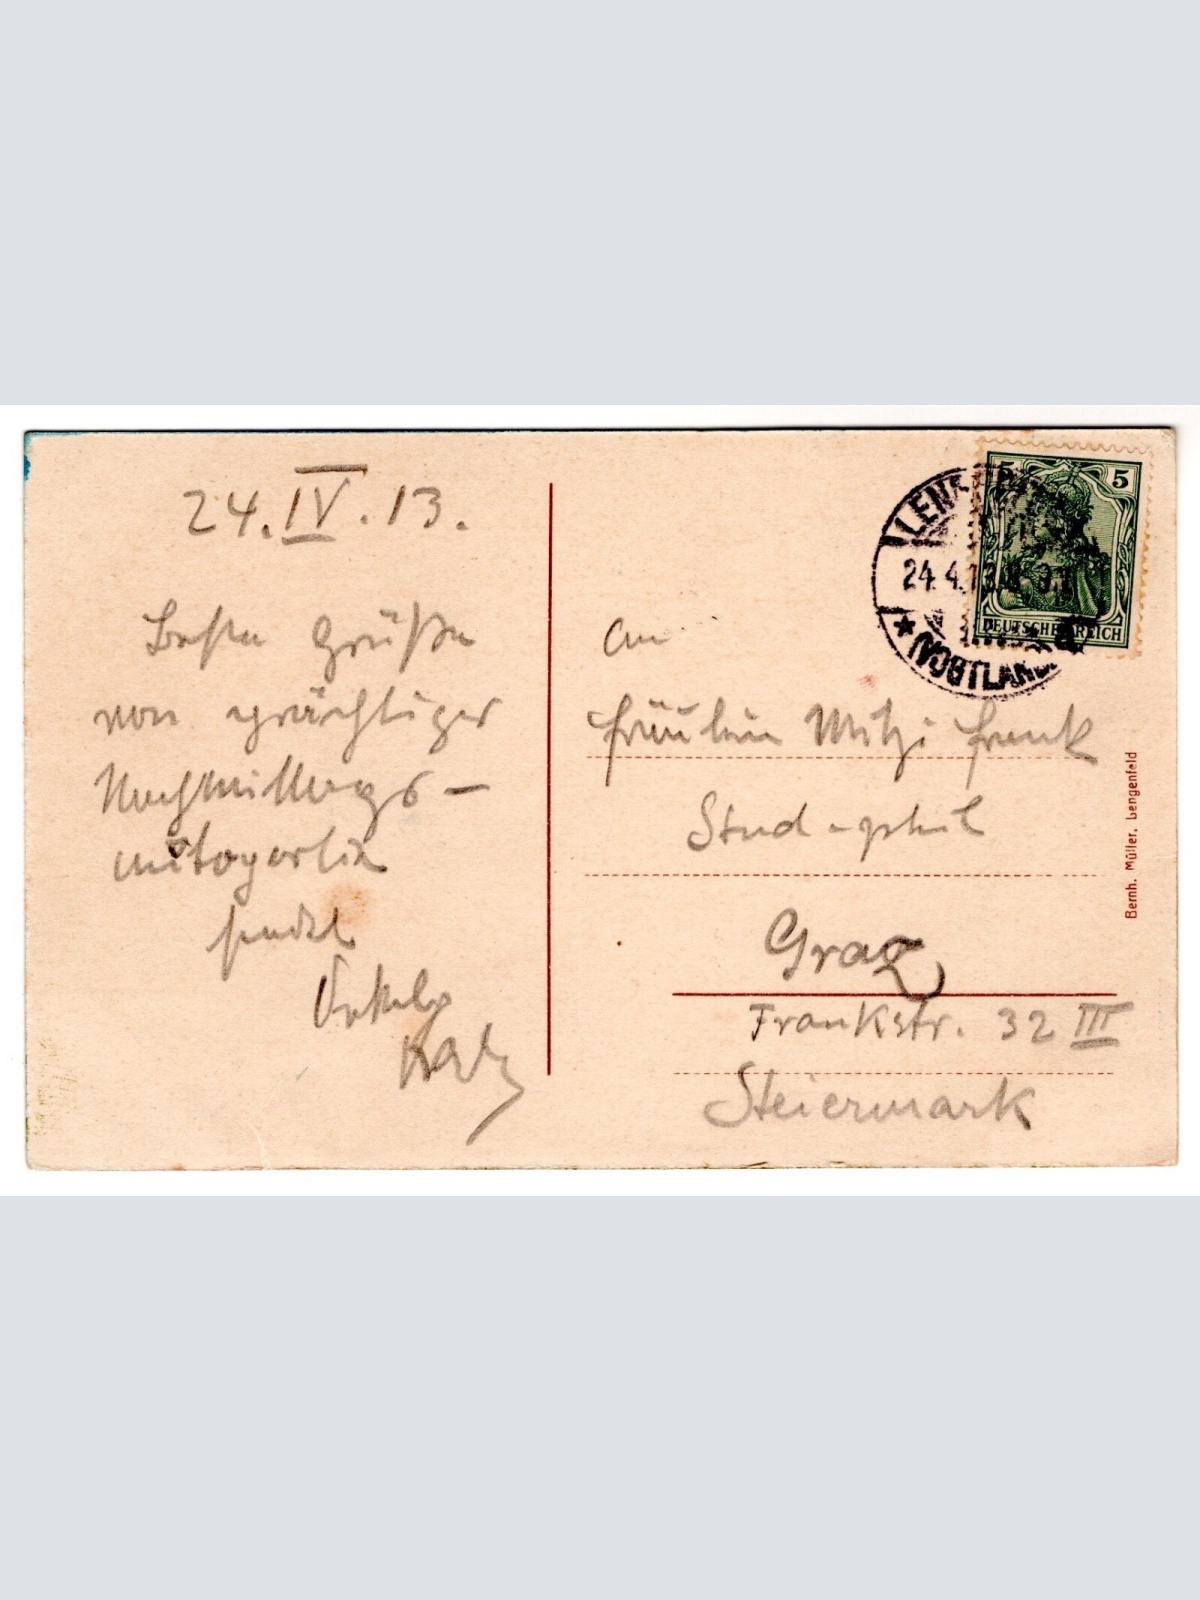 24.IV.13.
Beste Grüße
von prächtiger
Nachmittags-
autopartie
sendet
LENG
24.4.13.
* (VOGTLAND)
5 5
DEUTSCHES REICH
An
Fräulein Mitzi Frank
Stud. phil
Graz
Frankstr. 32 III
Steiermark
Bernh. Müller, Lengenfeld